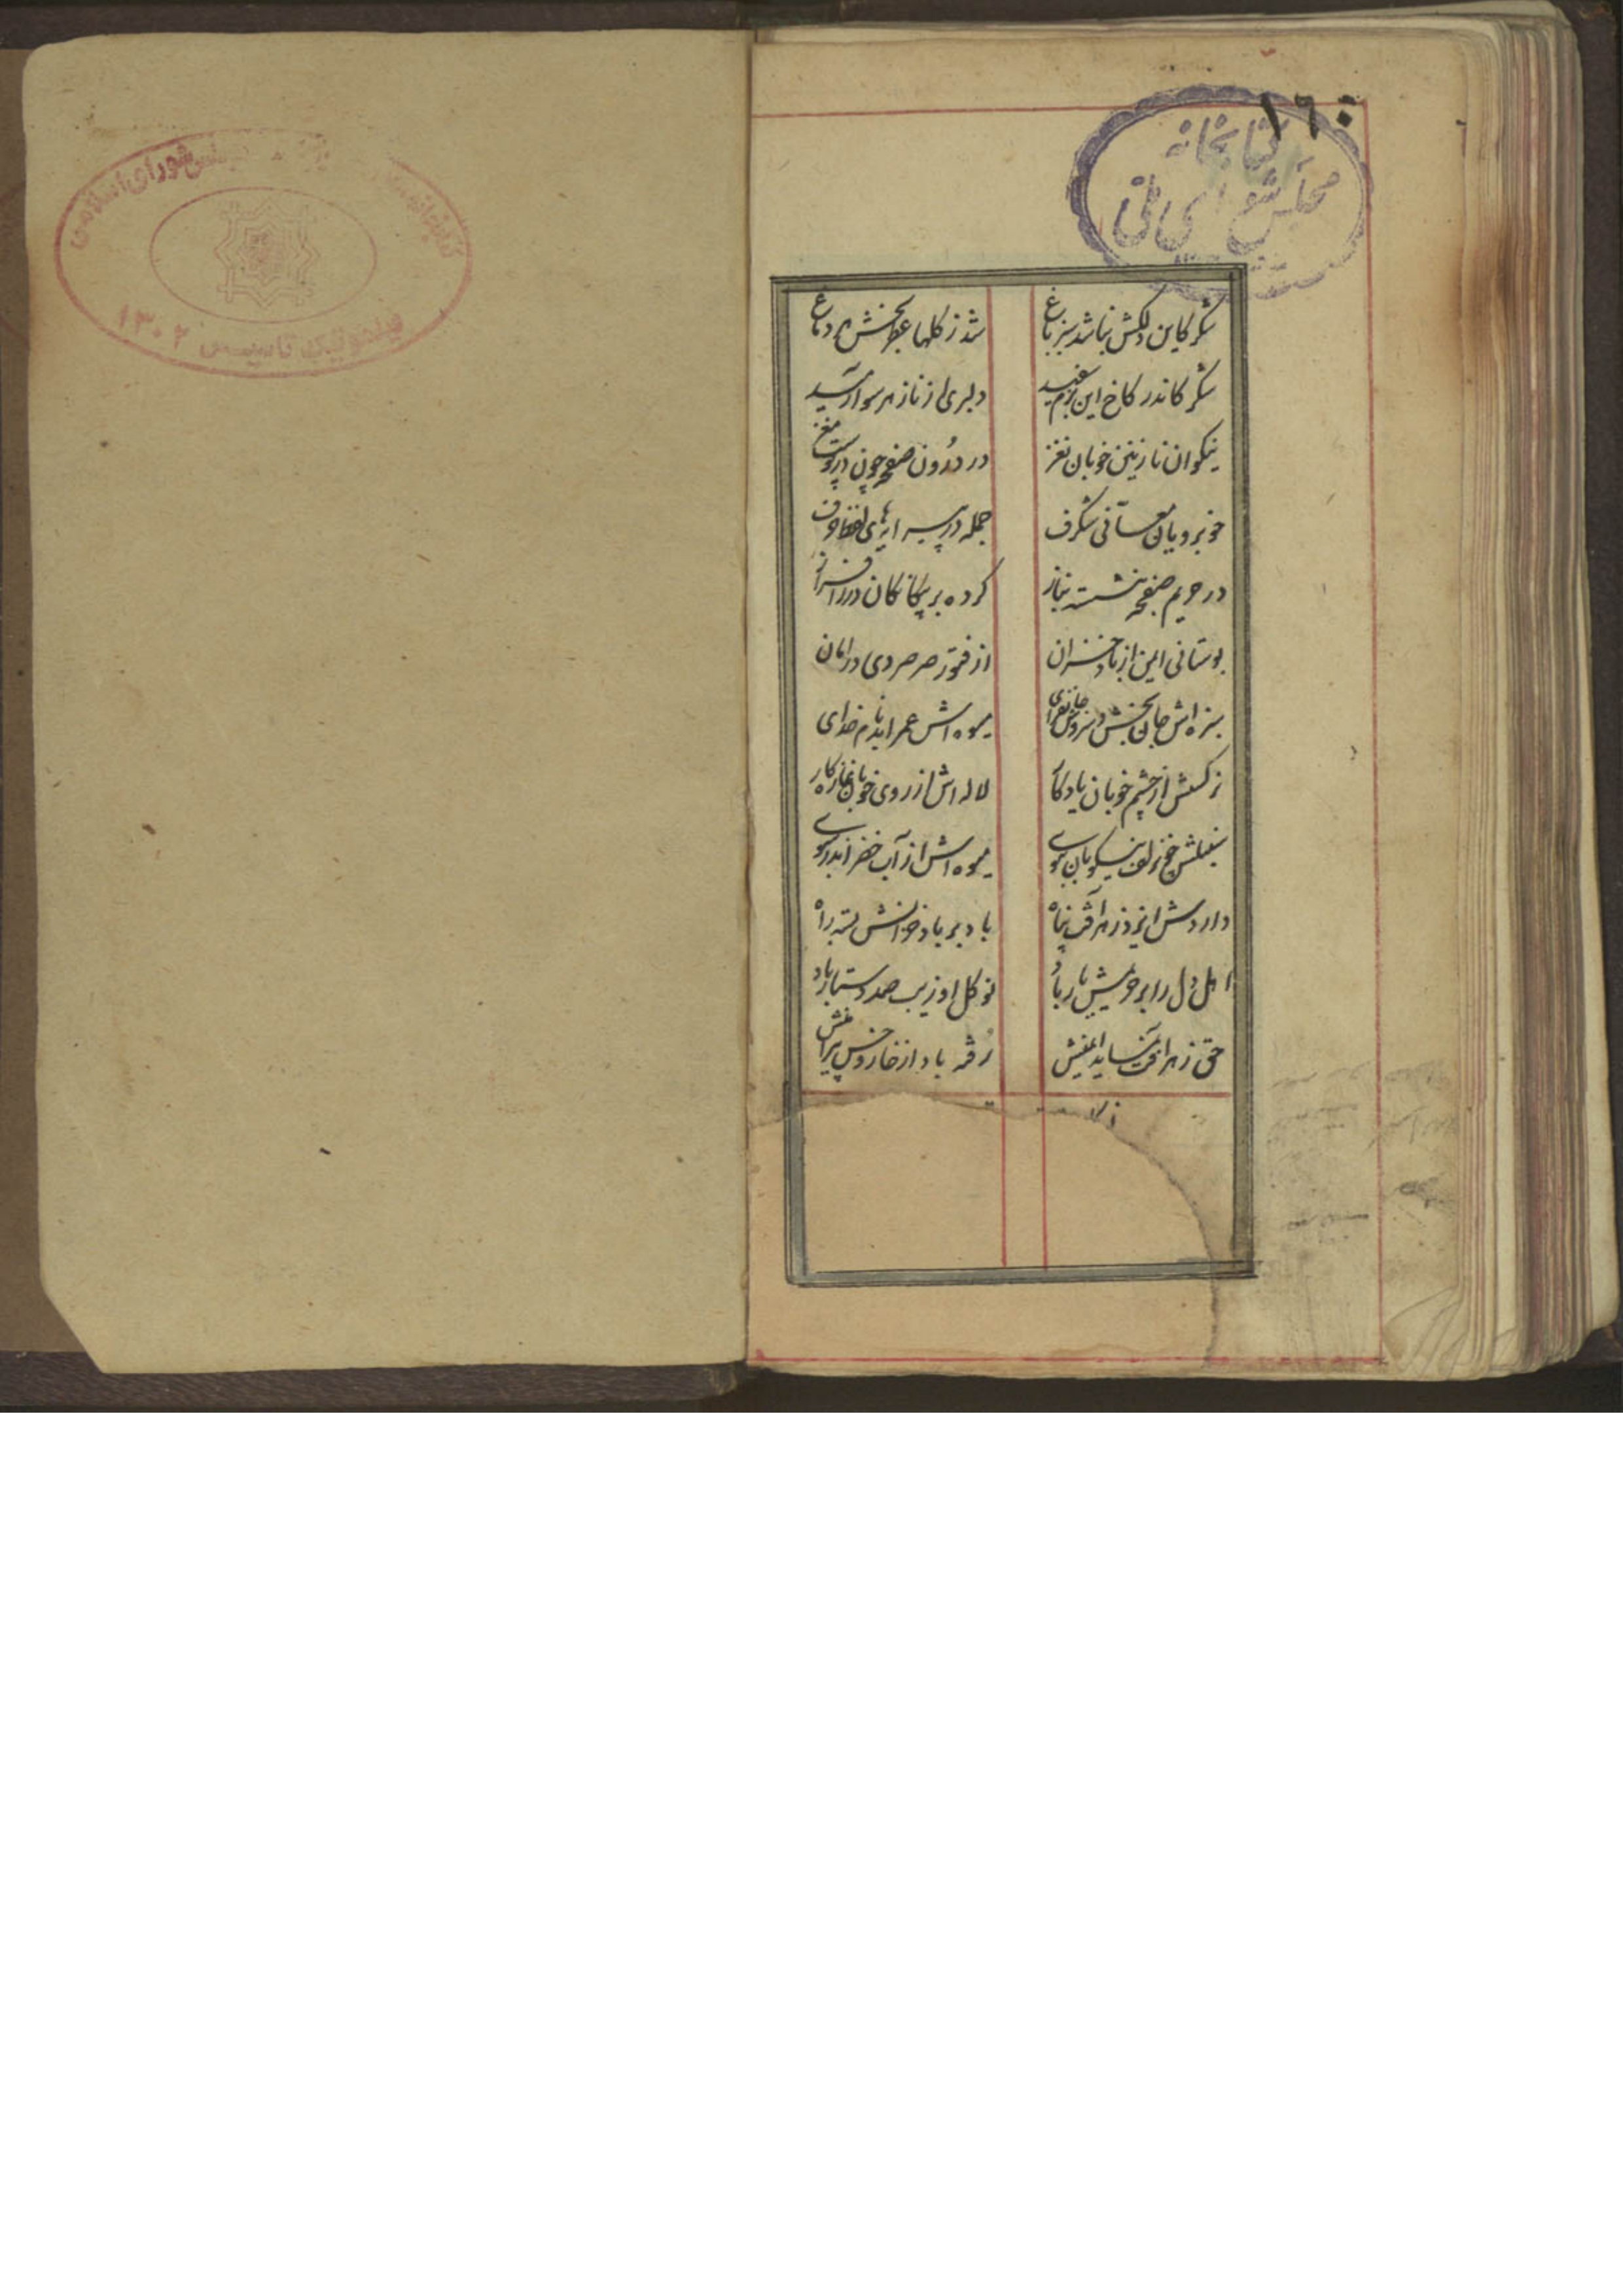 ۱۶۰
کتابخانه
مجلس شورای ملی
شکر کاین دلکش نباشد سبز باغ
شد ز گلها عطر بخش دماغ
شکر کاندر کاخ این بزم
دلبری از ناز هر سو آرمید
نیکوان نازنین خوبان نغز
در درون صفحه چون در پوست مغز
خوبرویان معانی شگرف
جمله در پیرایه‌های لفظ و حرف
در حریم صفحه بنشسته بناز
کرده بر بیکانگان در را فراز
بوستانی ایمن از باد خزان
از فتور صرصر دی در امان
سبزه‌اش جان بخش و سروش جانفزای
میوه‌اش عمر ابد نام خدای
نرکسش از چشم خوبان یادکار
لاله‌اش از روی خوبان
سنبلش زلف نیکویان بموی
میوه‌اش از آب خضر
داردش ایزد ز هر آفت پناه
باد بر باد خزانش بسته راه
اهل دل را بر خویش بار باد
نو کل او زیب صد دستار باد
حق ز هر نماید ایمنش
رفته باد از خار و خس پیرامنش
مجلس شورای اسلامی
تاسیس ۱۳۰۲